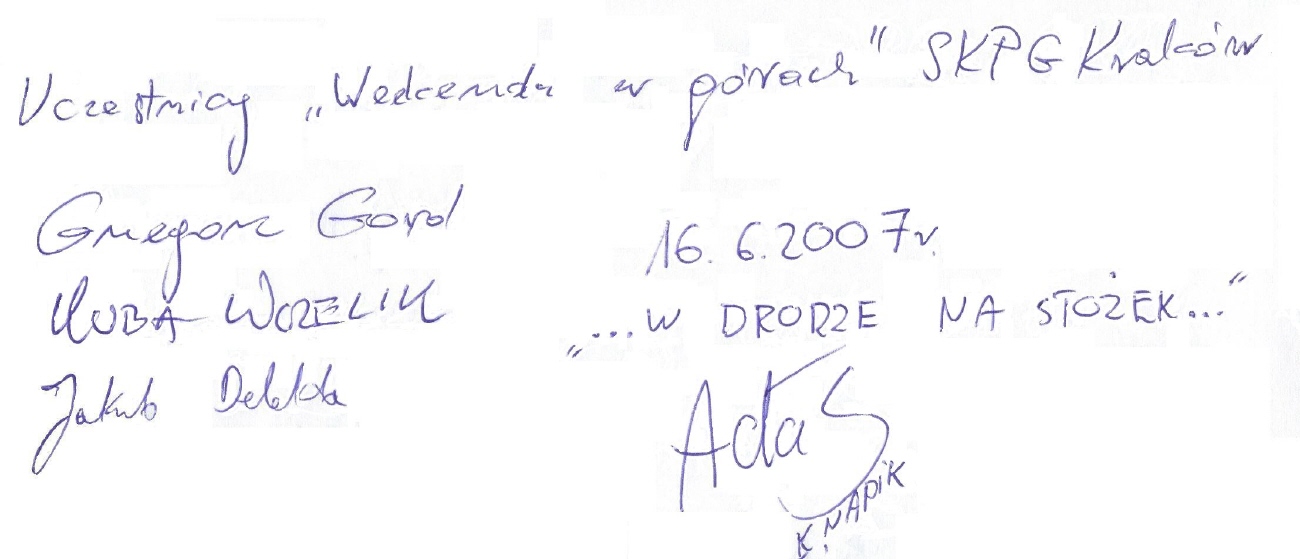 Uczestnicy „Weekendu w górach" SKPG Kraków
Grzegorz Gord
KUBA WCZELIK
Jakub
16. 6. 2007r.
„...W DRODZE NA STOŻEK..."
Adaś
KNAPIK